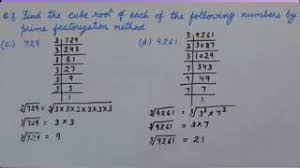 Q.3 Find the cube root of each of the following numbers by
prime factorization method
(c) 729
3 729
3 243
3 81
3 27
3 9
3 3
1
∛729 = ∛3×3×3×3×3×3
∛729 = 3×3
∛729 = 9
(d) 9261
3 9261
3 3087
3 1029
7 343
7 49
7 7
1
∛9261 = ∛3³×7³
∛9261 = 3×7
∛9261 = 21